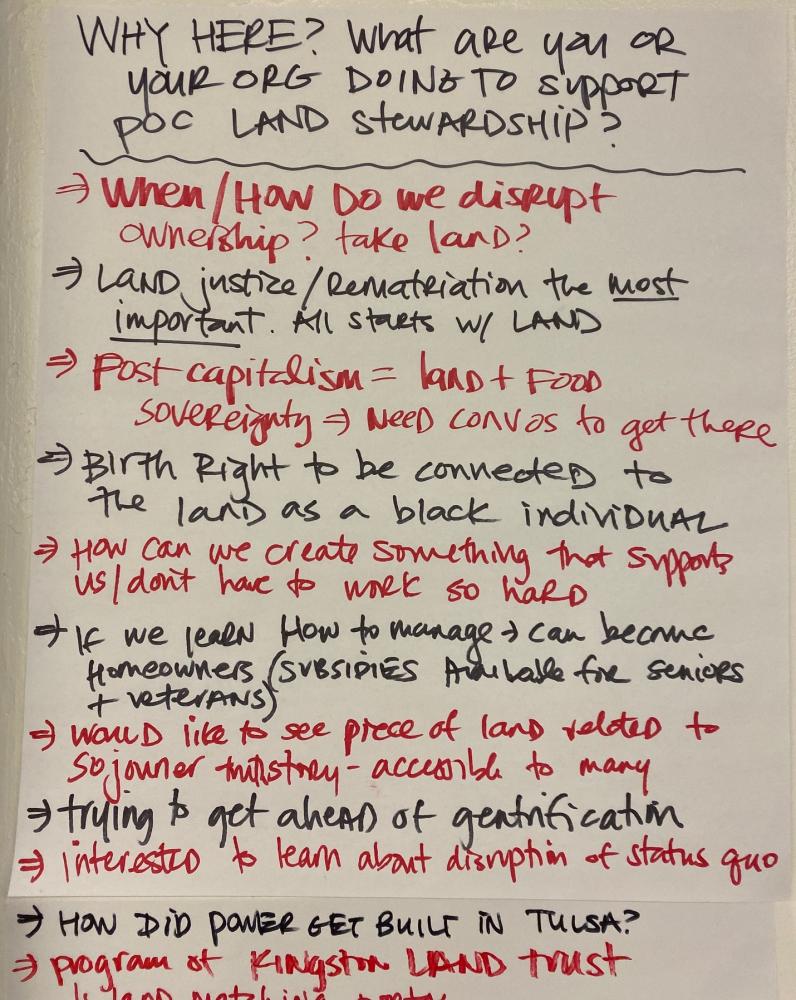 WHY HERE? What are you OR
YOUR ORG DOING TO SUPPORT
POC LAND StewARDSHIP?
⇒ When/How Do we disrupt
ownership? take land?
⇒ LAND justice/Rematriation the most
important. All starts w/ LAND
⇒ Post capitalism = land + FOOD
sovereignty ⇒ NEED CONVOS to get there
⇒ Birth Right to be connected to
the land as a black individual
⇒ How can we create something that supports
us/don't have to work so hard
→ If we learn How to manage → can become
Homeowners (SUBSIDIES Available for seniors
+ veterans)
⇒ would like to see piece of land related to
Sojourner - accessible to many
⇒ trying to get ahead of gentrification
⇒ interested to learn about disruption of status quo
⇒ HOW DID POWER GET BUILT IN TULSA?
⇒ program of KINGSTON LAND trust
land matching